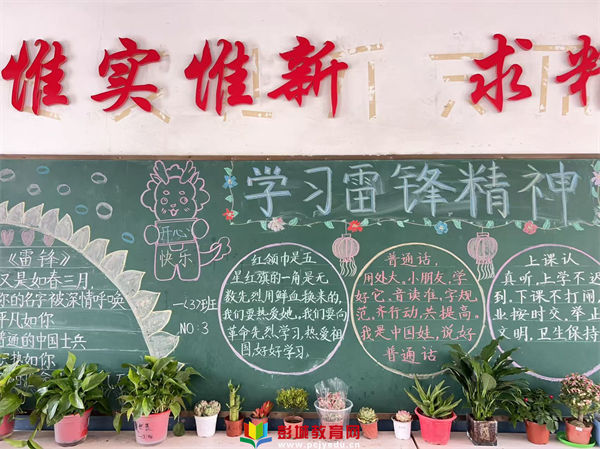 惟实惟新 求
学习雷锋精神
开心
快乐
《雷锋》
又是如春三月,
你的名字被深情呼唤
平凡如你
普通的中国士兵
如你
一<37班
NO:3
红领巾是五
星红旗的一角是无
数先烈用鲜血换来的,
我们要热爱她。我们要向
革命先烈学习,热爱祖
国,好好学习。
普通话,
用处大。小朋友,学
好它,音读准,字规
范,齐行动,共提高。
我是中国娃,说好
普通话
上课认
真听,上学不迟
到,下课不打闹,
业按时交,举止
文明,卫生保持
彭城教育网